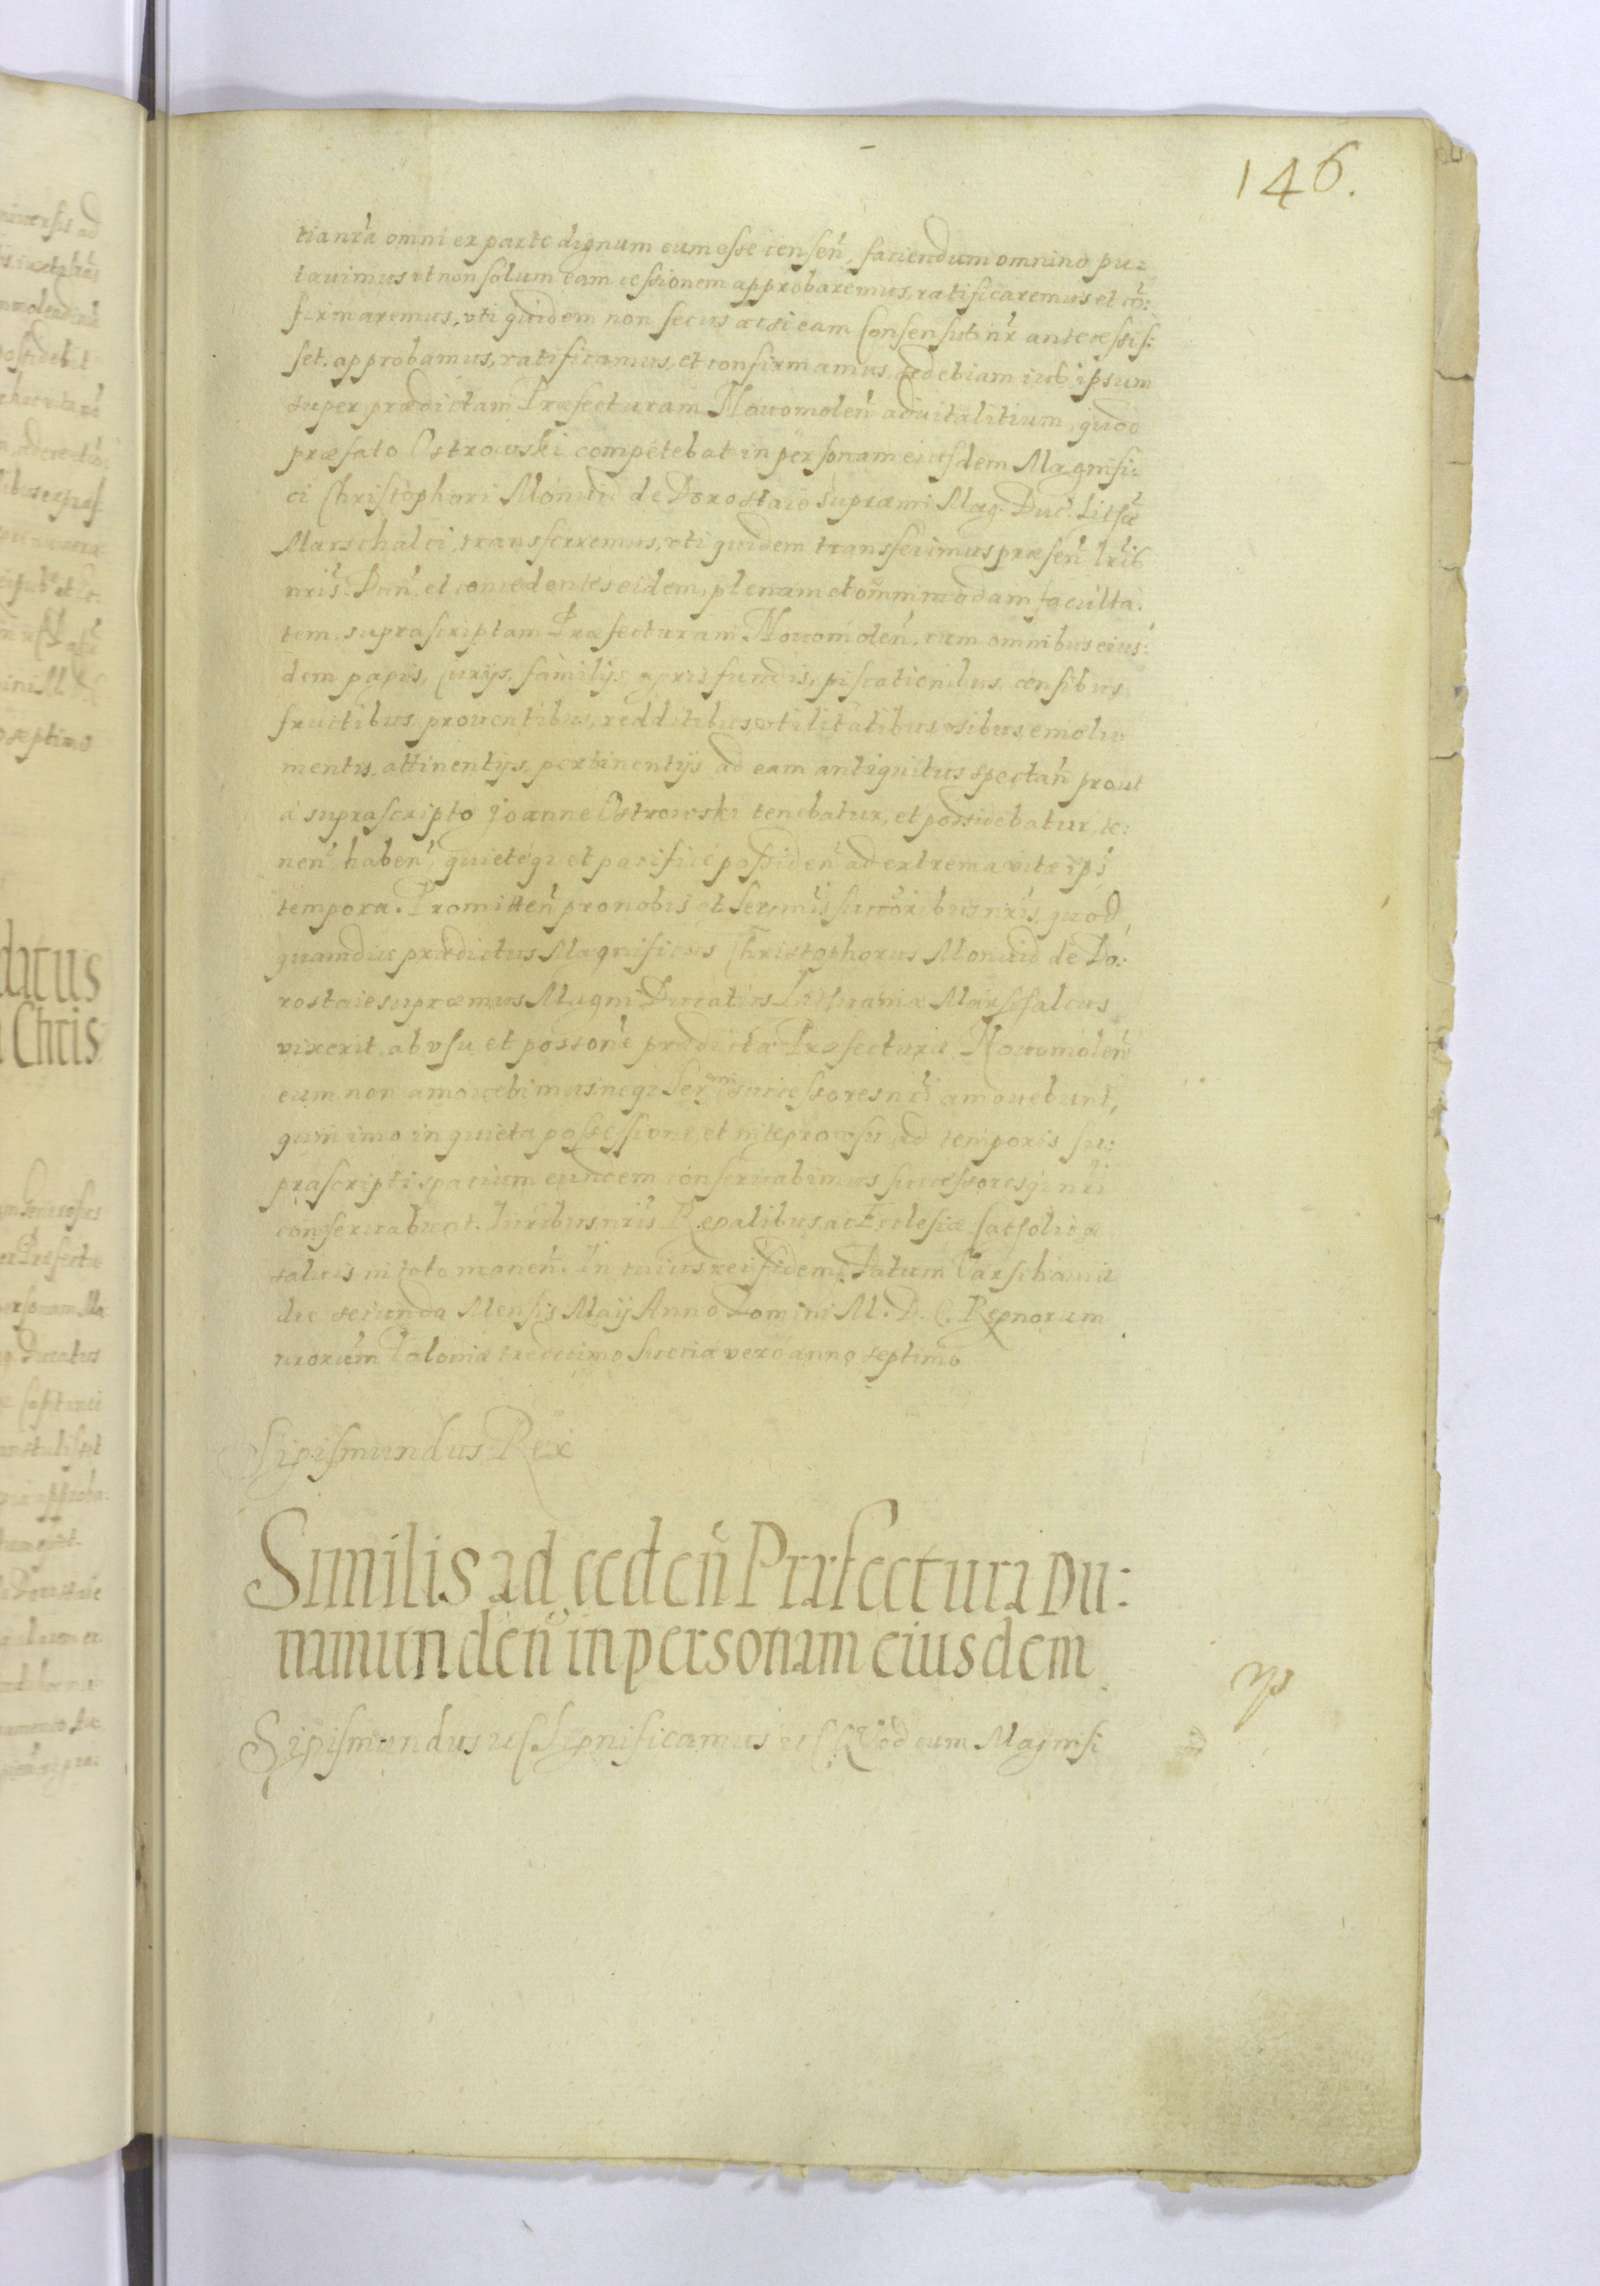 146.
tia nr̃a omni ex parte dignum eum esse censeñ, faciendum omnino pu:
tauimus ut non solum eam cessionem approbaremus, ratificaremus et cõ:
firmaremus, vti quidem non secus ac si eam Consensus nr̃ antecessis:
set. approbamus, ratificamus, et confirmamus, sed etiam ius ipsum
super prædictam Præfecturam Nouomoleñ aduitalitium, quod
præfato Ostrowski competebat in personam eiusdem Magnifi:
ci Christophori Monuid de Dorostaie supræmi Mag. Duc. Lithũæ
Marschalci, transferremus, vti quidem transferimus præseñ lr̃is
nr̃is. Dan̄. et concedentes eidem, plenam et omnimodam faculta:
tem, suprascriptam Præfecturam Nouomoleñ. cum omnibus eius:
dem pagis, curijs, familijs agris fundis, piscationibus, censibus,
fructibus prouentibus, redditibus, vtilitatibus vsibus, emolu
mentis, attinentijs, pertinentijs ad eam antiquitus spectañ prout
à suprascripto Joanne Ostrowski tenebatur, et possidebatur, te:
neñ. habeñ, quietéq; et pacificé possideñ ad extrema vitæ ips̃
tempora. Promitteñ pro nobis et Sereniss̃ succr̃oribus nr̃is, quod
quamdiu prædictus Magnificus Christophorus Monuid de Do:
rostaie supræmus Magni Ducatus Lithuaniæ Marschalcus
vixerit, ab vsu et possone prædictæ Præfecturæ Nouomoleñ
eum non amouebimus neq; Sermi successores nr̃i amouebunt,
quin imo in quieta possessione, et integro vsu, ad temporis su:
prascripti spatium eundem conseruabimus successoresq; nr̃i
conseruabunt. Iuribus nr̃is Regalibus, ac Ecclesiæ Catholicæ
saluis in toto maneñ. In cuius rei fidem. Datum Varschauiæ
die secunda Mensis Maij Anno Domini M. D. C. Regnorum
nrorum Poloniæ tredecimo Sueciæ vero anno septimo
Sigismundus Rex
Similis ad cedeñ Præfectura Du:
namundeñ in personam eiusdem
Sigismundus Significamus QVod cum Magnifi